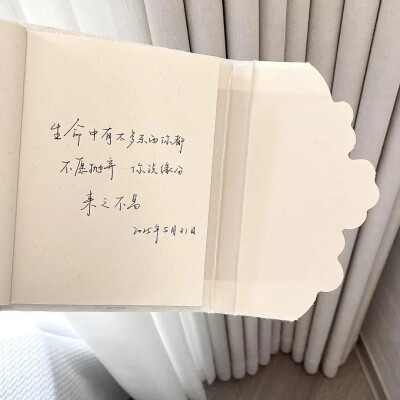 生命中有太多东西你都
不愿抛弃 你说缘分
来之不易
2025年5月21日